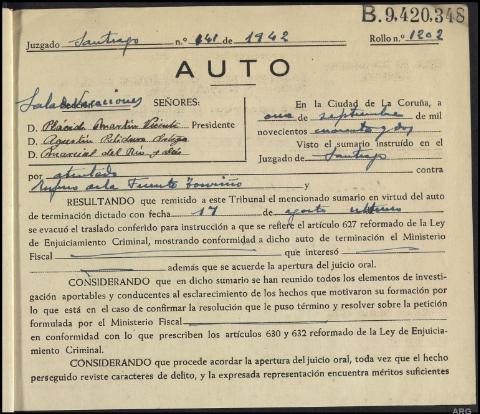 B.9.420.348
Juzgado Santiago n.º 141 de 1942 Rollo n.º 1202
AUTO
Sala de Vacaciones
SEÑORES:
D. Plácido Martín Presidente
D. Agustín
D. Marcial del Río y
En la Ciudad de La Coruña, a
once de septiembre de mil
novecientos cuarenta y dos
Visto el sumario instruído en el
Juzgado de Santiago
por atentado contra
de la Fuente y
RESULTANDO que remitido a este Tribunal el mencionado sumario en virtud del auto
de terminación dictado con fecha 17 de agosto último
se evacuó el traslado conferido para instrucción a que se refiere el artículo 627 reformado de la Ley
de Enjuiciamiento Criminal, mostrando conformidad a dicho auto de terminación el Ministerio
Fiscal que interesó
además que se acuerde la apertura del juicio oral.
CONSIDERANDO que en dicho sumario se han reunido todos los elementos de investi-
gación aportables y conducentes al esclarecimiento de los hechos que motivaron su formación por
lo que está en el caso de confirmar la resolución que le puso término y resolver sobre la petición
formulada por el Ministerio Fiscal
en conformidad con lo que prescriben los artículos 630 y 632 reformado de la Ley de Enjuicia-
miento Criminal.
CONSIDERANDO que procede acordar la apertura del juicio oral, toda vez que el hecho
perseguido reviste caracteres de delito, y la expresada representación encuentra méritos suficientes
ARG